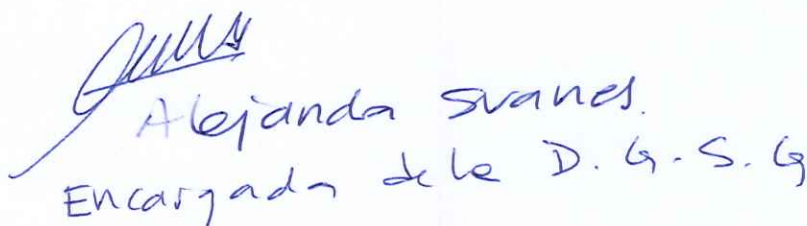 Alejanda Svanes.
Encargada de la D. G. S. G